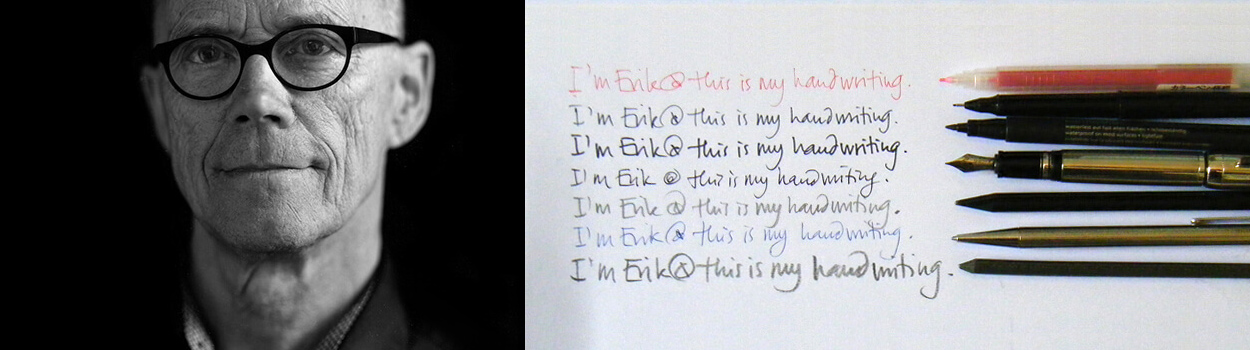 I'm Erik & this is my handwriting.
I'm Erik & this is my handwriting.
I'm Erik & this is my handwriting.
I'm Erik & this is my handwriting.
I'm Erik & this is my handwriting.
I'm Erik & this is my handwriting.
I'm Erik & this is my handwriting.